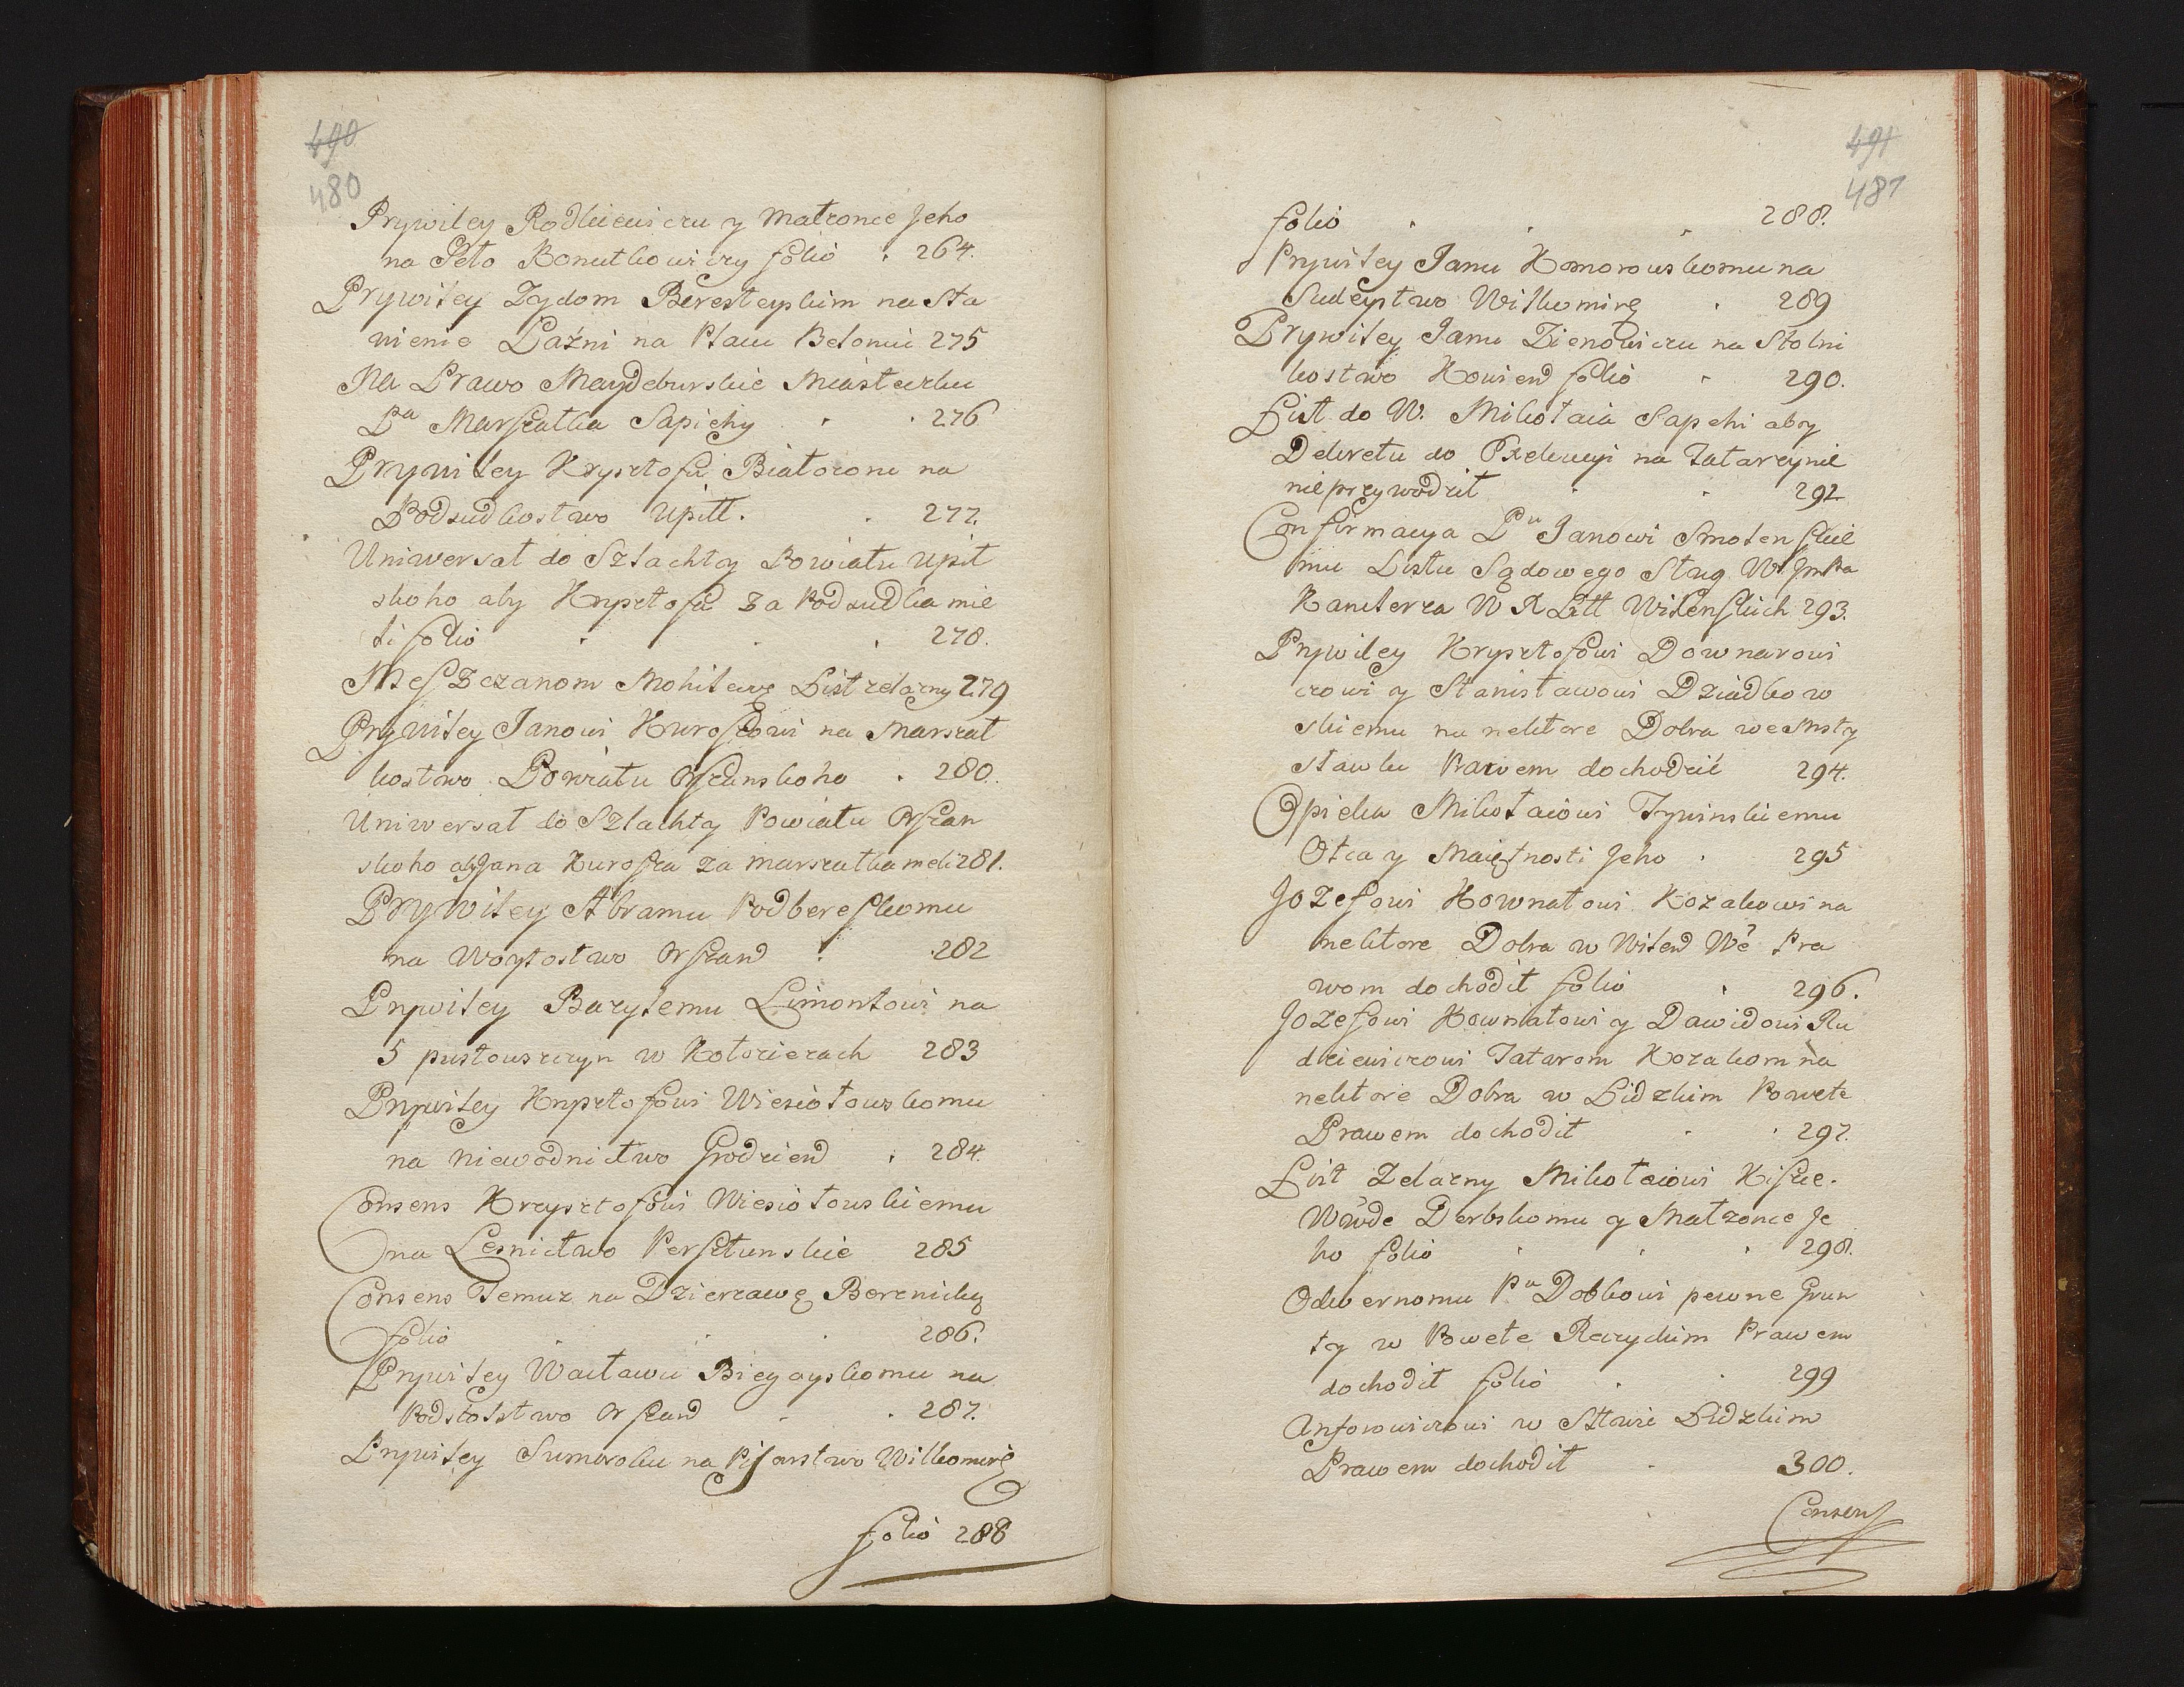 490
480
Prywiley Rodkiewiczu y Małżonce Jeho
na Seło Bonutkowiczy folio . 264.
Prywiley Zydom Beresteyskim na Sta
nienie Łaźni na Placu Belonui 275
Na Prawo Maydeburskie Miasteczku
Pa Marszałka Sapiehy . . 276
Prywiley Krysztofu Białozoru na
Podsudkostwo Upitt. . 277.
Uniwersał do Szlachty Powiatu Upit
skoho aby Krysztofa za Podsudka mie
li folio . . . 278.
Mesczanom Mohilewę List zelazny 279
Prywiley Janowi Kuroszowi na Marszał
kostwo Powiatu Orszanskoho . 280.
Uniwersał do Szlachty Powiatu Orszan
skoho aby Jana Kurosza za marszałka meli 281.
Prywiley Abramu Podbereskomu
na Woytostwo Orszand . 282
Prywiley Bazylemu Limontowi na
5 pustowszczyn w Kotozierach 283
Prywiley Krysztofowi Wiesiołowskomu
na niewodnictwo Grodziend . 284.
Consens Krzysztofowi Wiesiołowskiemu
na Lesnictwo Perstunskie 285
Consens Temuz na Dzierzawę Berzniky
folio . . . 286.
Prywiley Wacławu Biegayskomu na
Podstolstwo Orszand . . 287.
Prywiley Sumoroku na Pisarstwo Wilkomirę
folio 288
491
481
folio . . . 288.
Prywiley Janu Komorowskomu na
Sudeystwo Wilkomirę . 289
Prywiley Janu Zienowiczu na Stolni
kostwo Kowiend folio . 290.
List do W. Mikołaia Sapehi aby
Dekretu do Exekucyi na Tatarzynie
nieprzywodził . . 292
Confirmacya Pu Janowi Smolenskie
mu Listu Sądowego Sług W Jm Pa
Kanclerza W X Litt Wilenskich 293.
Prywiley Krysztofowi Downarowi
czowi y Stanisławowi Dziadkow
skiemu na nektore Dobra we Msty
sławlu Prawem dochodzić 294.
Opieka Mikołaiowi Tywinskiemu
Otca y Maiętnosti Jeho . 295
Jozefowi Kownatowi Kozakowi na
nektore Dobra w Wilend Wê Pra
wom dochodit folio . 296.
Jozefowi Kownatowi y Dawidowi Ru
dziewiczowi Tatarom Kozakom na
nektore Dobra w Lidzkim Powete
Prawem dochodit . . 297.
List Zelazny Mikołaiowi Kiszce.
Wwde Derbskomu y Małżonce Je
ho folio . . . 298.
Odwernomu Pu Dobkowi pewne Grun
ty w Powete Reczyckim Prawem
dochodit folio . . 299
Anforowiczowi w Sttwie Lidzkim
Prawem dochodit . 300.
Consens